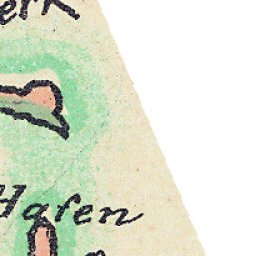 erk
Hafen